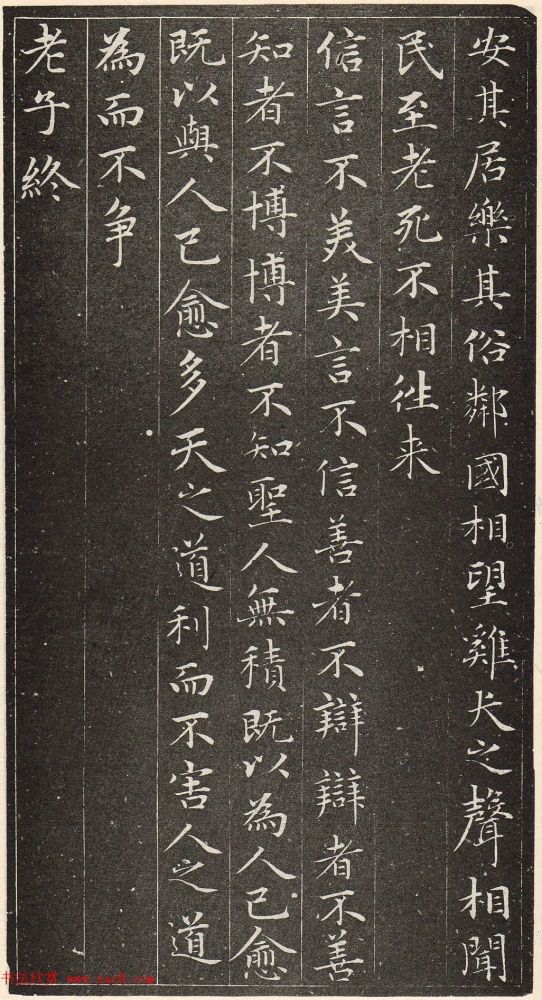 安其居樂其俗鄰國相望雞犬之聲相聞
民至老死不相往来
信言不美美言不信善者不辯辯者不善
知者不博博者不知聖人無積既以為人己愈
既以與人己愈多天之道利而不害人之道
為而不争
老子終
书法欣赏 www.yac8.com